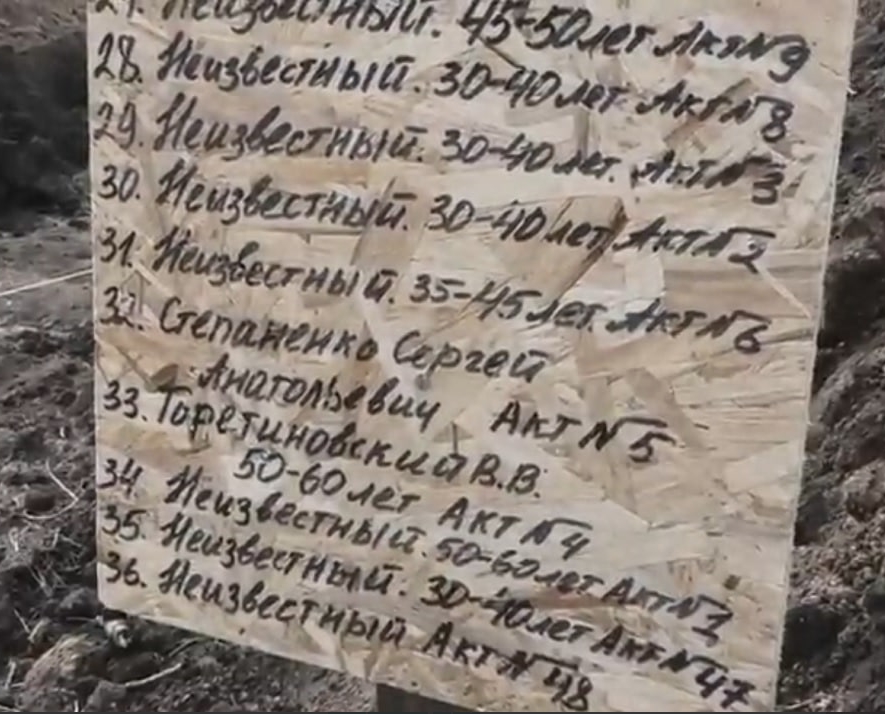 27. Неизвестный. 45-50 лет Акт N9
28. Неизвестный. 30-40 лет. Акт N8
29. Неизвестный. 30-40 лет. Акт N3
30. Неизвестный. 30-40 лет Акт N2
31. Неизвестный. 35-45 лет. Акт N6
32. Степаненко Сергей
Анатольевич Акт N5
33. Торетиновский В.В.
50-60 лет Акт N4
34. Неизвестный. 50-60 лет Акт N1
35. Неизвестный. 30-40 лет Акт N47
36. Неизвестный Акт N48